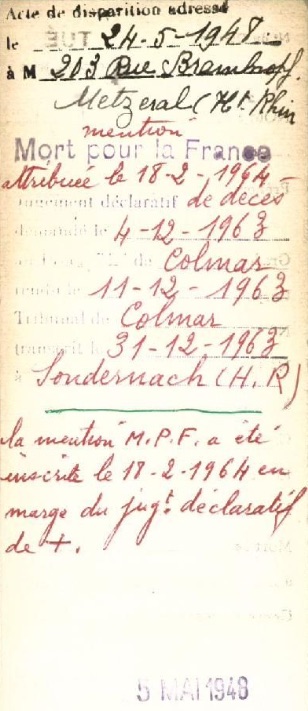 Acte de disparition adressé
le 24-5-1948.
à M 203 Rue
Metzeral (Ht Rhin
mention
Mort pour la France
attribuée le 18-2-1964-
jugement déclaratif de décès
demandé le 4-12-1963
du Colmar
rendu le 11-12-1963
Tribunal de Colmar
transcrit le 31-12-1963
à Sondernach (H.R)
la mention M.P.F. a été
inscrite le 18-2-1964 en
marge du jugt déclaratif
de +.
5 MAI 1948